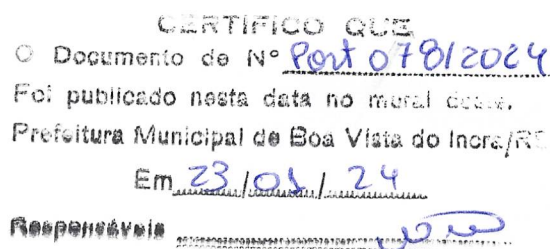 CERTIFICO QUE
O Documento de Nº Port 078/2024
Foi publicado nesta data no mural desta.
Prefeitura Municipal de Boa Vista do Incra/RS
Em 23/01/24
Responsáveis